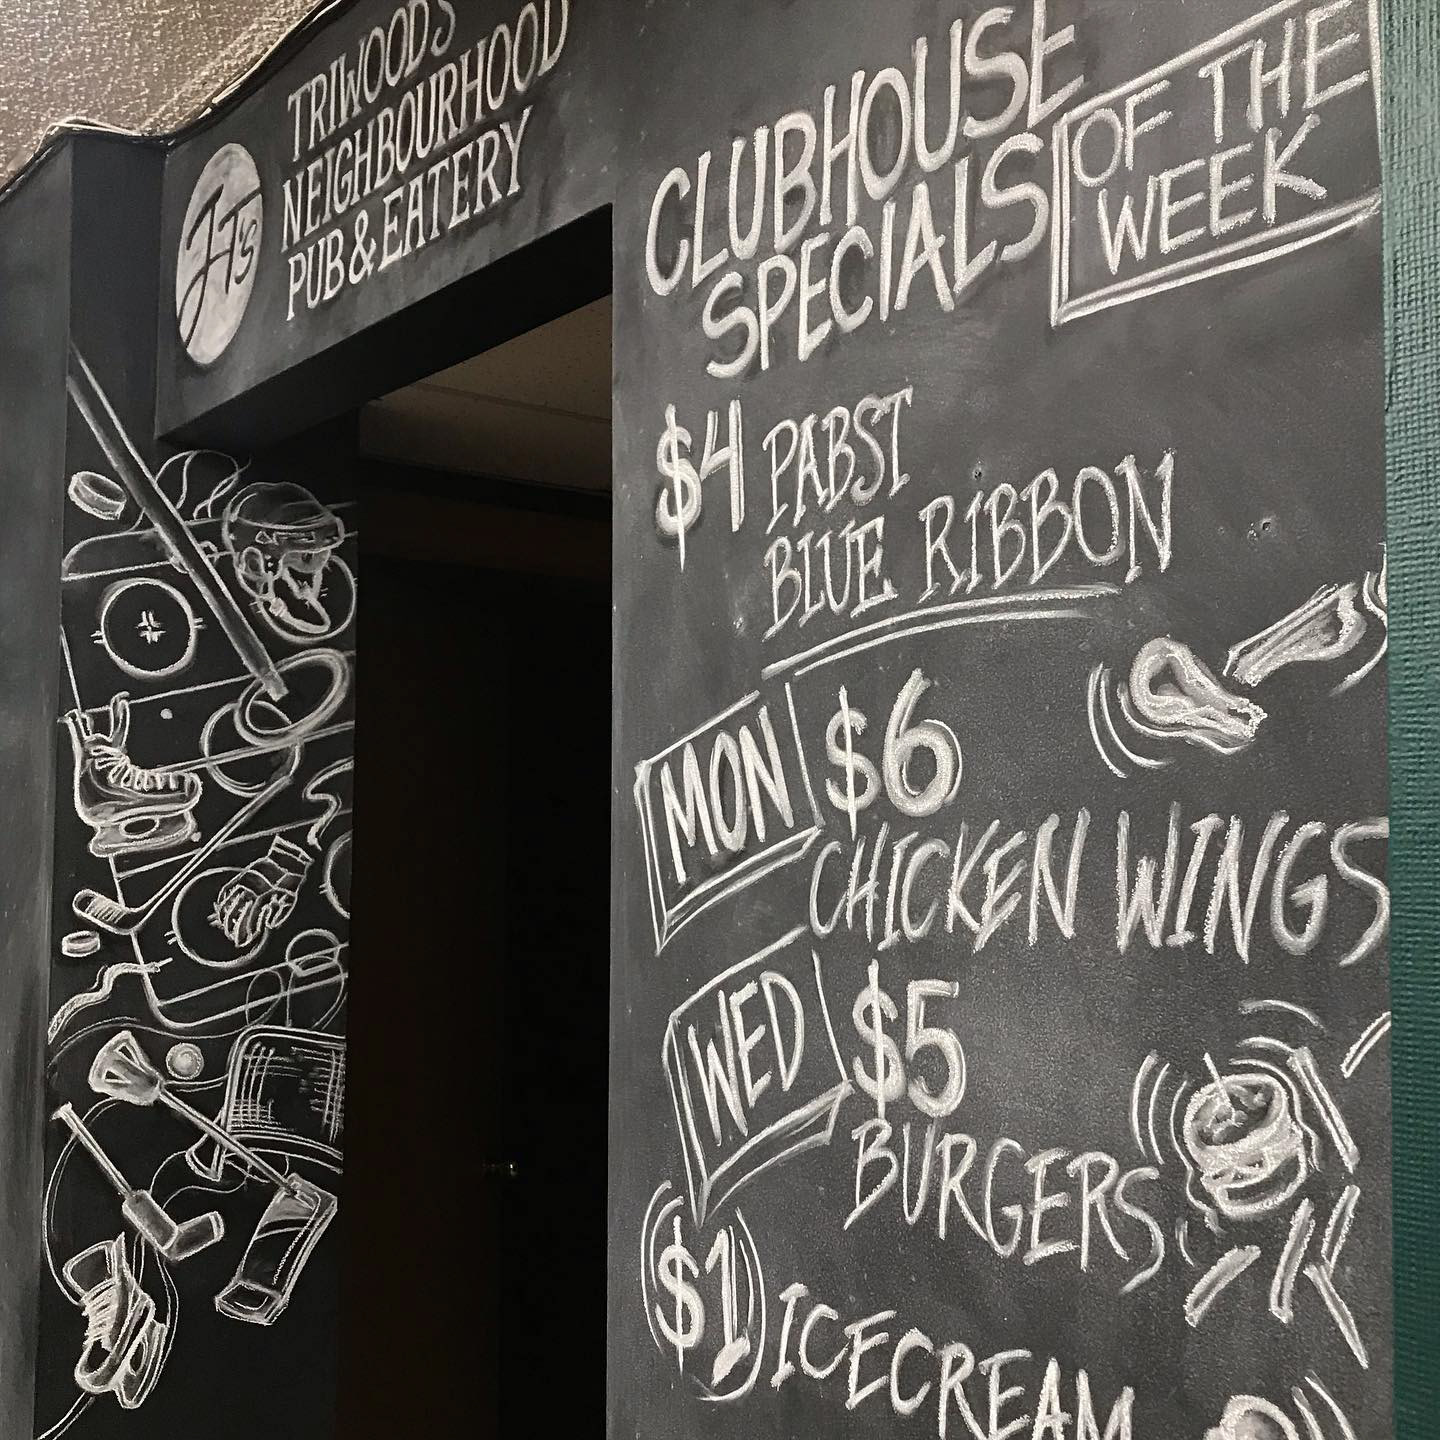 JT's
TRIWOODS
NEIGHBOURHOOD
PUB & EATERY
CLUBHOUSE
SPECIALS
OF THE
WEEK
$4 PABST
BLUE RIBBON
MON $6
CHICKEN WINGS
WED $5
BURGERS
$1 ICECREAM